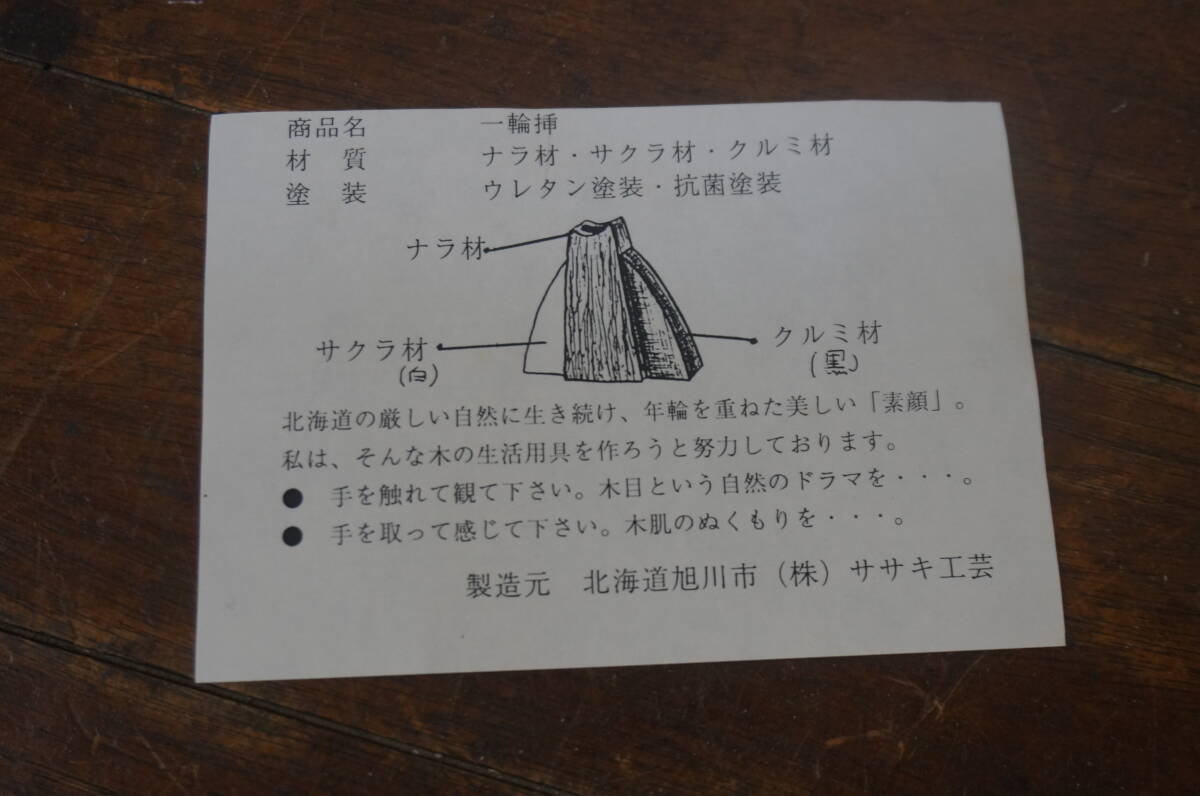 商品名 一輪挿
材 質 ナラ材・サクラ材・クルミ材
塗 装 ウレタン塗装・抗菌塗装
ナラ材
サクラ材
(白)
クルミ材
(黒)
北海道の厳しい自然に生き続け、年輪を重ねた美しい「素顔」。
私は、そんな木の生活用具を作ろうと努力しております。
● 手を触れて観て下さい。木目という自然のドラマを・・・。
● 手を取って感じて下さい。木肌のぬくもりを・・・。
製造元 北海道旭川市(株)ササキ工芸